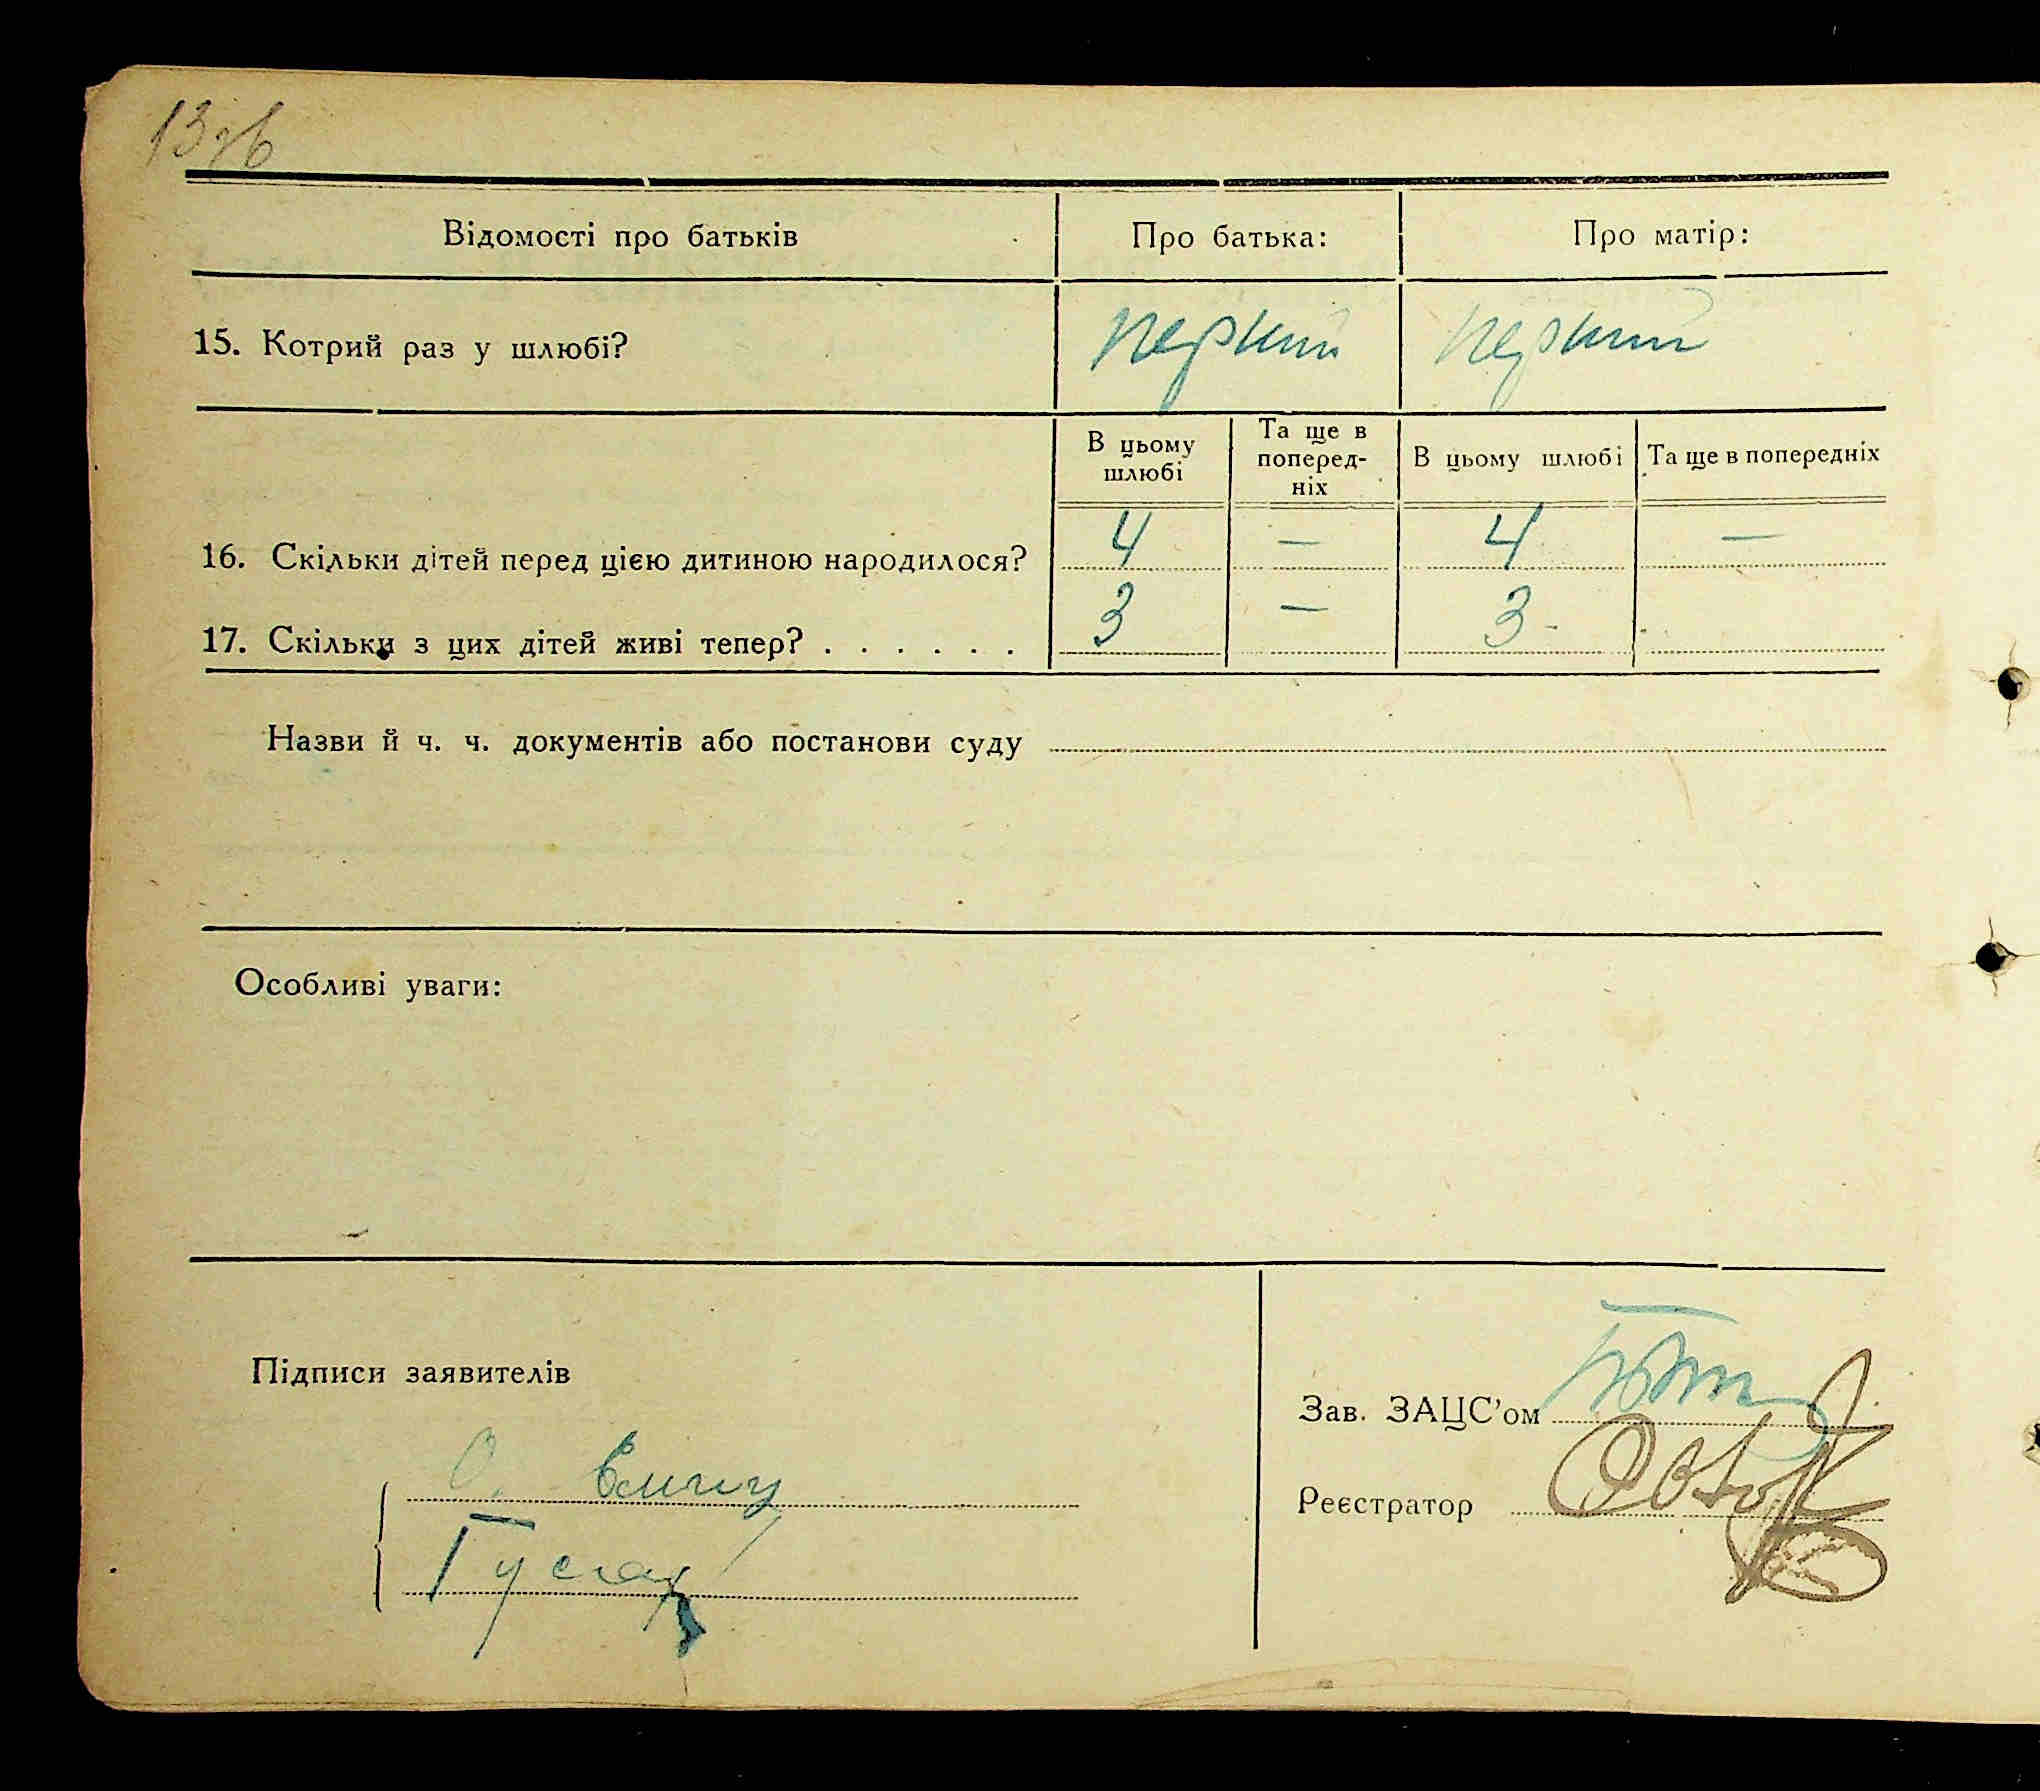 13зв
Відомості про батьків Про батька: Про матір:
15. Котрий раз у шлюбі? перший перший
В цьому шлюбі Та ще в поперед-ніх В цьому шлюбі Та ще в попередніх
16. Скільки дітей перед цією дитиною народилося? 4 — 4 —
17. Скільки з цих дітей живі тепер? . . . . . . 3 — 3 -
Назви й ч. ч. документів або постанови суду
Особливі уваги:
Підписи заявителів
Зав. ЗАЦС’ом
О.
Реєстратор